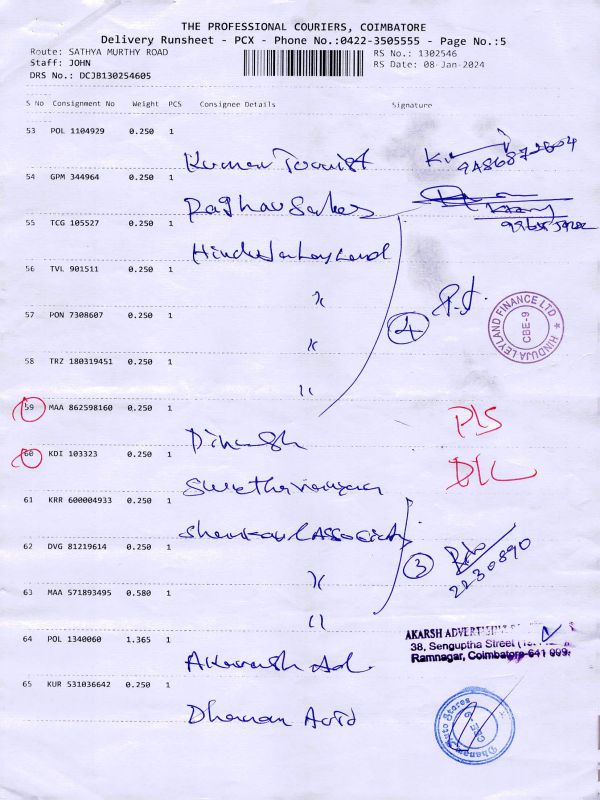 THE PROFESSIONAL COURIERS, COIMBATORE
Delivery Runsheet - PCX - Phone No.:0422-3505555 - Page No.:5
Route: SATHYA MURTHY ROAD RS No.: 1302546
Staff: JOHN RS Date: 08-Jan-2024
DRS No.: DCJB130254605
S No Consignment No Weight PCS Consignee Details Signature
53 POL 1104929 0.250 1
Kumar Tourist
9486872604
54 GPM 344964 0.250 1
Raghav Sales
55 TCG 105527 0.250 1
Hinduja Leyland
56 TVL 901511 0.250 1
"
57 PON 7308607 0.250 1
" 4
HINDUJA LEYLAND FINANCE LTD
CBE-9
58 TRZ 180319451 0.250 1
"
59 MAA 862598160 0.250 1
Dinesh
60 KDI 103323 0.250 1
DLC
61 KRR 600004933 0.250 1
62 DVG 81219614 0.250 1
" 3
2230890
63 MAA 571893495 0.580 1
"
64 POL 1340060 1.365 1
AKARSH
38, Senguptha Street
Ramnagar, Coimbatore-641 009.
Akarsh Ad.
65 KUR 531036642 0.250 1
Dhanam Auto
Auto Stores